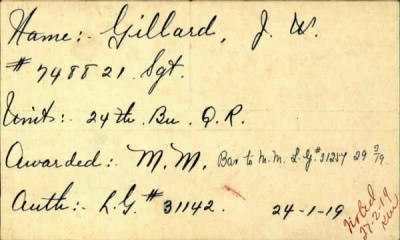 Name:- Gillard, J. W.
# 748821 Sgt.
Unit:- 24th. Bn. Q.R.
Awarded:- M.M. Bar to M.M. L.G. # 31257 29/3/19
Auth:- L.G. # 31142. 24-1-19
Noted
27-2-19